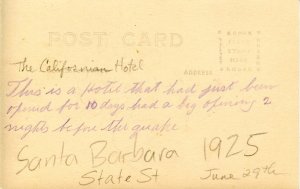 POST CARD
The Californian Hotel
ADDRESS
This is a hotel that had just been
opened for 10 days had a big opening 2
nights before the quake
Santa Barbara 1925
State St June 29th